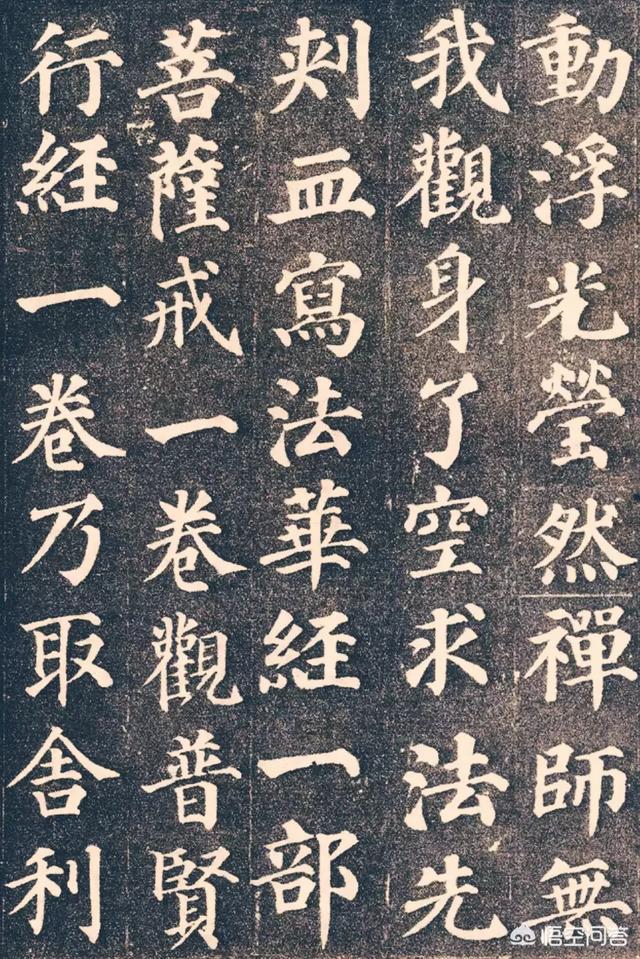 動浮光瑩然禪師無
我觀身了空求法先
刾血寫法華經一部
菩薩戒一卷觀普賢
行經一卷乃取舎利
悟空问答